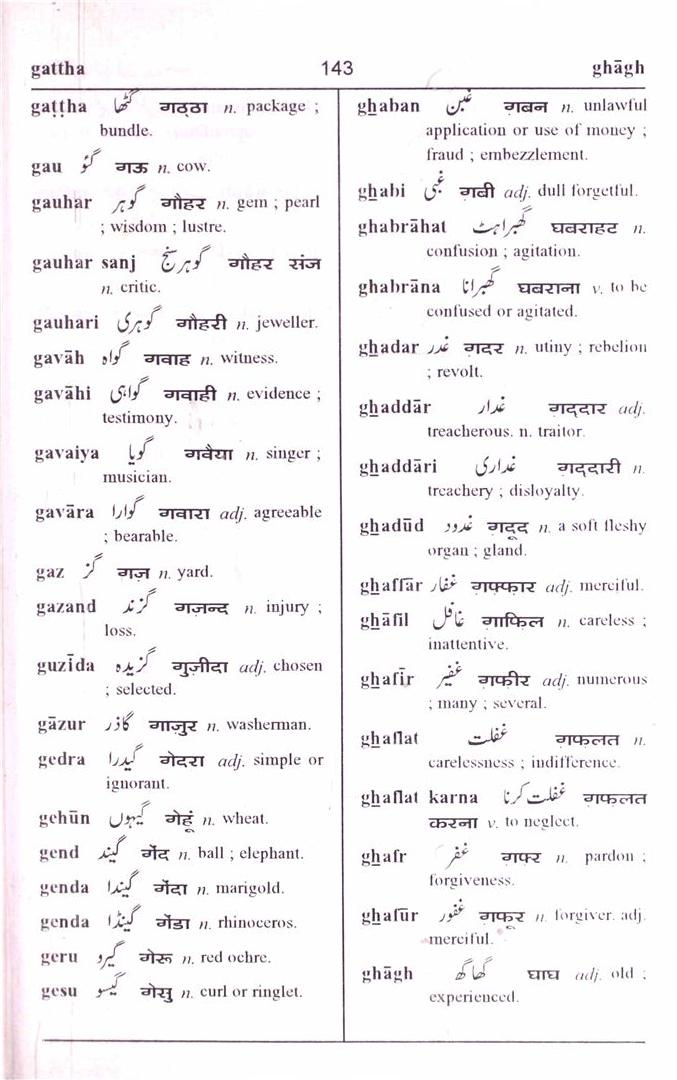 gattha 143 ghāgh
gaṭṭha گٹھا गठ्ठा n. package ;
bundle.
gau گئو गऊ n. cow.
gauhar گوہر गौहर n. gem ; pearl
; wisdom ; lustre.
gauhar sanj گوہر سنج गौहर संज
n. critic.
gauhari گوہری गौहरी n. jeweller.
gavāh گواہ गवाह n. witness.
gavāhi گواہی गवाही n. evidence ;
testimony.
gavaiya گویا गवैया n. singer ;
musician.
gavāra گوارا गवारा adj. agreeable
; bearable.
gaz گز गज़ n. yard.
gazand گزند गज़न्द n. injury ;
loss.
guzīda گزیدہ गुज़ीदा adj. chosen
; selected.
gāzur گاذر गाजुर n. washerman.
gedra گیدرا गेदरा adj. simple or
ignorant.
gehūn گیہوں गेहूं n. wheat.
gend گیند गेंद n. ball ; elephant.
genda گیندا गेंदा n. marigold.
genda گینڈا गेंडा n. rhinoceros.
geru گیرو गेरू n. red ochre.
gesu گیسو गेसु n. curl or ringlet.
ghaban غبن ग़बन n. unlawful
application or use of money ;
fraud ; embezzlement.
ghabi غبی गबी adj. dull forgetful.
ghabrāhat گھبراہٹ घबराहट n.
confusion ; agitation.
ghabrāna گھبرانا घबराना v. to be
confused or agitated.
ghadar غدر गदर n. utiny ; rebelion
; revolt.
ghaddār غدار गद्दार adj.
treacherous. n. traitor.
ghaddāri غداری गद्दारी n.
treachery ; disloyalty.
ghadūd غدود गदूद n. a soft fleshy
organ ; gland.
ghaffār غفار गफ्फार adj. merciful.
ghāfil غافل गाफिल n. careless ;
inattentive.
ghafīr غفیر गफीर adj. numerous
; many ; several.
ghaflat غفلت गफलत n.
carelessness ; indifference.
ghaflat karna غفلت کرنا गफलत
करना v. to neglect.
ghafr غفر गफर n. pardon ;
forgiveness.
ghafūr غفور गफूर n. forgiver. adj.
merciful.
ghāgh گھاگھ घाघ adj. old ;
experienced.